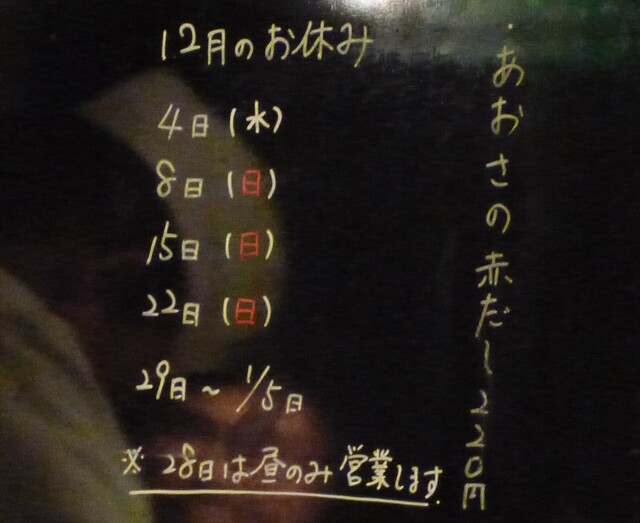 12月のお休み
4日(水)
8日(日)
15日(日)
22日(日)
29日～1/5日
※28日は昼のみ営業します.
・あおさの赤だし220円